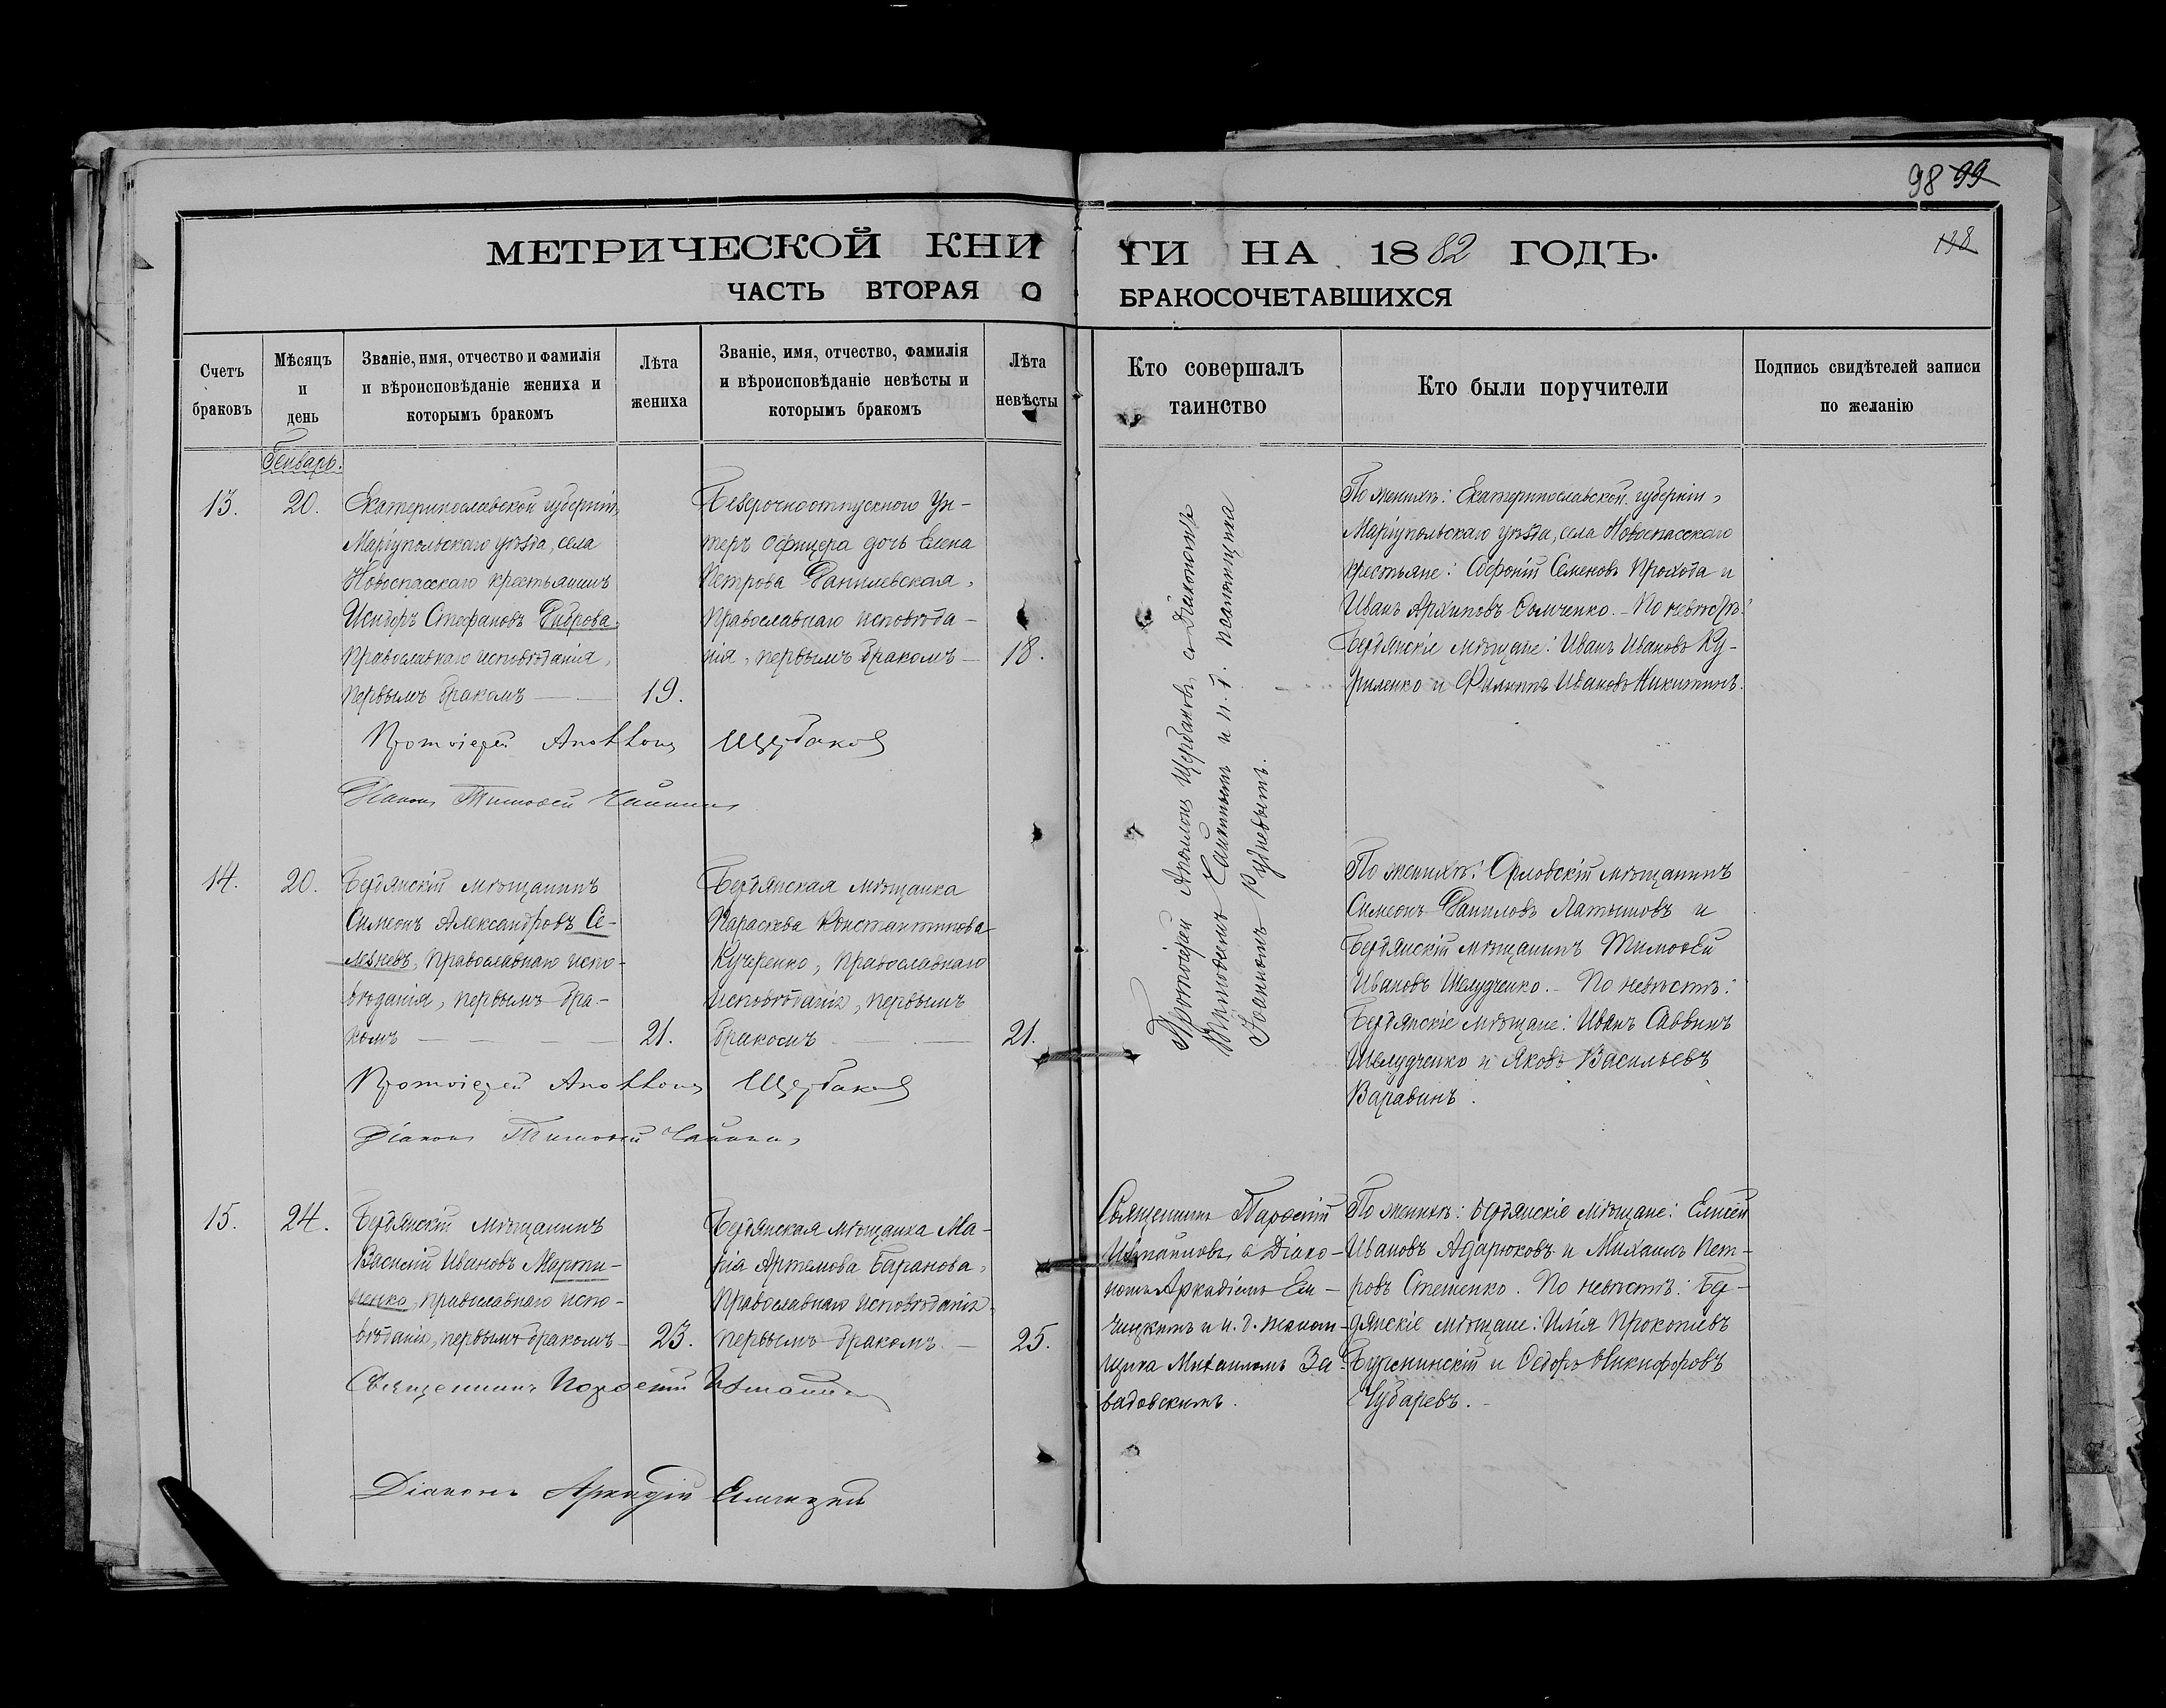 98 99
138
МЕТРИЧЕСКОЙ КНИ
ГИ НА 1882 ГОДЪ.
ЧАСТЬ ВТОРАЯ О
БРАКОСОЧЕТАВШИХСЯ
Счетъ браковъ
Мѣсяцъ и день
Званіе, имя, отчество и фамилія
и вѣроисповѣданіе жениха и
которымъ бракомъ
Лѣта жениха
Званіе, имя, отчество, фамилія
и вѣроисповѣданіе невѣсты и
которымъ бракомъ
Лѣта невѣсты
Кто совершалъ
таинство
Кто были поручители
Подпись свидѣтелей записи
по желанію
Генварь.
13.
20.
Екатеринославской губерніи,
Маріупольскаго уѣзда, села
Новоспасскаго крестьянинъ
Исидоръ Стефановъ Диброва,
православнаго исповѣданія,
первымъ бракомъ —
19.
Безсрочноотпускного Ун-
теръ офицера дочь Елена
Петрова Данилевская,
православнаго исповѣда-
нія, первымъ бракомъ —
18.
Протоіерей Аполлонъ Щербаковъ
Діаконъ Тимоѳей
Протоіерей Аполлонъ Щербаковъ, съ Діакономъ
Тимоѳеемъ и и. д. псаломщика
Іоанномъ
По женихѣ: Екатеринославской губерніи,
Маріупольскаго уѣзда, села Новоспасскаго
крестьяне: Софоній Семеновъ Прохода и
Иванъ Архиповъ Сомченко. – По невѣстѣ:
Бердянскіе мѣщане: Иванъ Ивановъ Ку-
риленко и Филиппъ Ивановъ Никитинъ.
14.
20.
Бердянскій мѣщанинъ
Симеонъ Александровъ Се-
лезневъ, православнаго испо-
вѣданія, первымъ бра-
комъ —
21.
Бердянская мѣщанка
Параскева Константинова
Кучеренко, православнаго
исповѣданія, первымъ
бракомъ —
21.
Протоіерей Аполлонъ Щербаковъ
Діаконъ Тимоѳей
По женихѣ: Орловскій мѣщанинъ
Симеонъ Даниловъ Латышовъ и
Бердянскій мѣщанинъ Тимоѳей
Ивановъ Шелудченко. – По невѣстѣ:
Бердянскіе мѣщане: Иванъ Саввинъ
Шелудченко и Яковъ Васильевъ
Варавинъ.
15.
24.
Бердянскій мѣщанинъ
Василій Ивановъ Марти-
ненко, православнаго испо-
вѣданія, первымъ бракомъ –
23.
Бердянская мѣщанка Ма-
рія Артемова Баранова,
православнаго исповѣданія,
первымъ бракомъ. —
25.
Священникъ Парѳеній
Діаконъ Аркадій
Священникъ Парѳеній
съ Діако-
номъ Аркадіемъ
и и. д. псалом-
щика Михаиломъ За-
вадовскимъ.
По женихѣ: бердянскіе мѣщане: Елисей
Ивановъ Адарюковъ и Михаилъ Пет-
ровъ Стешенко. По невѣстѣ: Бер-
дянскіе мѣщане: Илія Прокопіевъ
и Ѳедоръ Никифоровъ
Чубаревъ. –